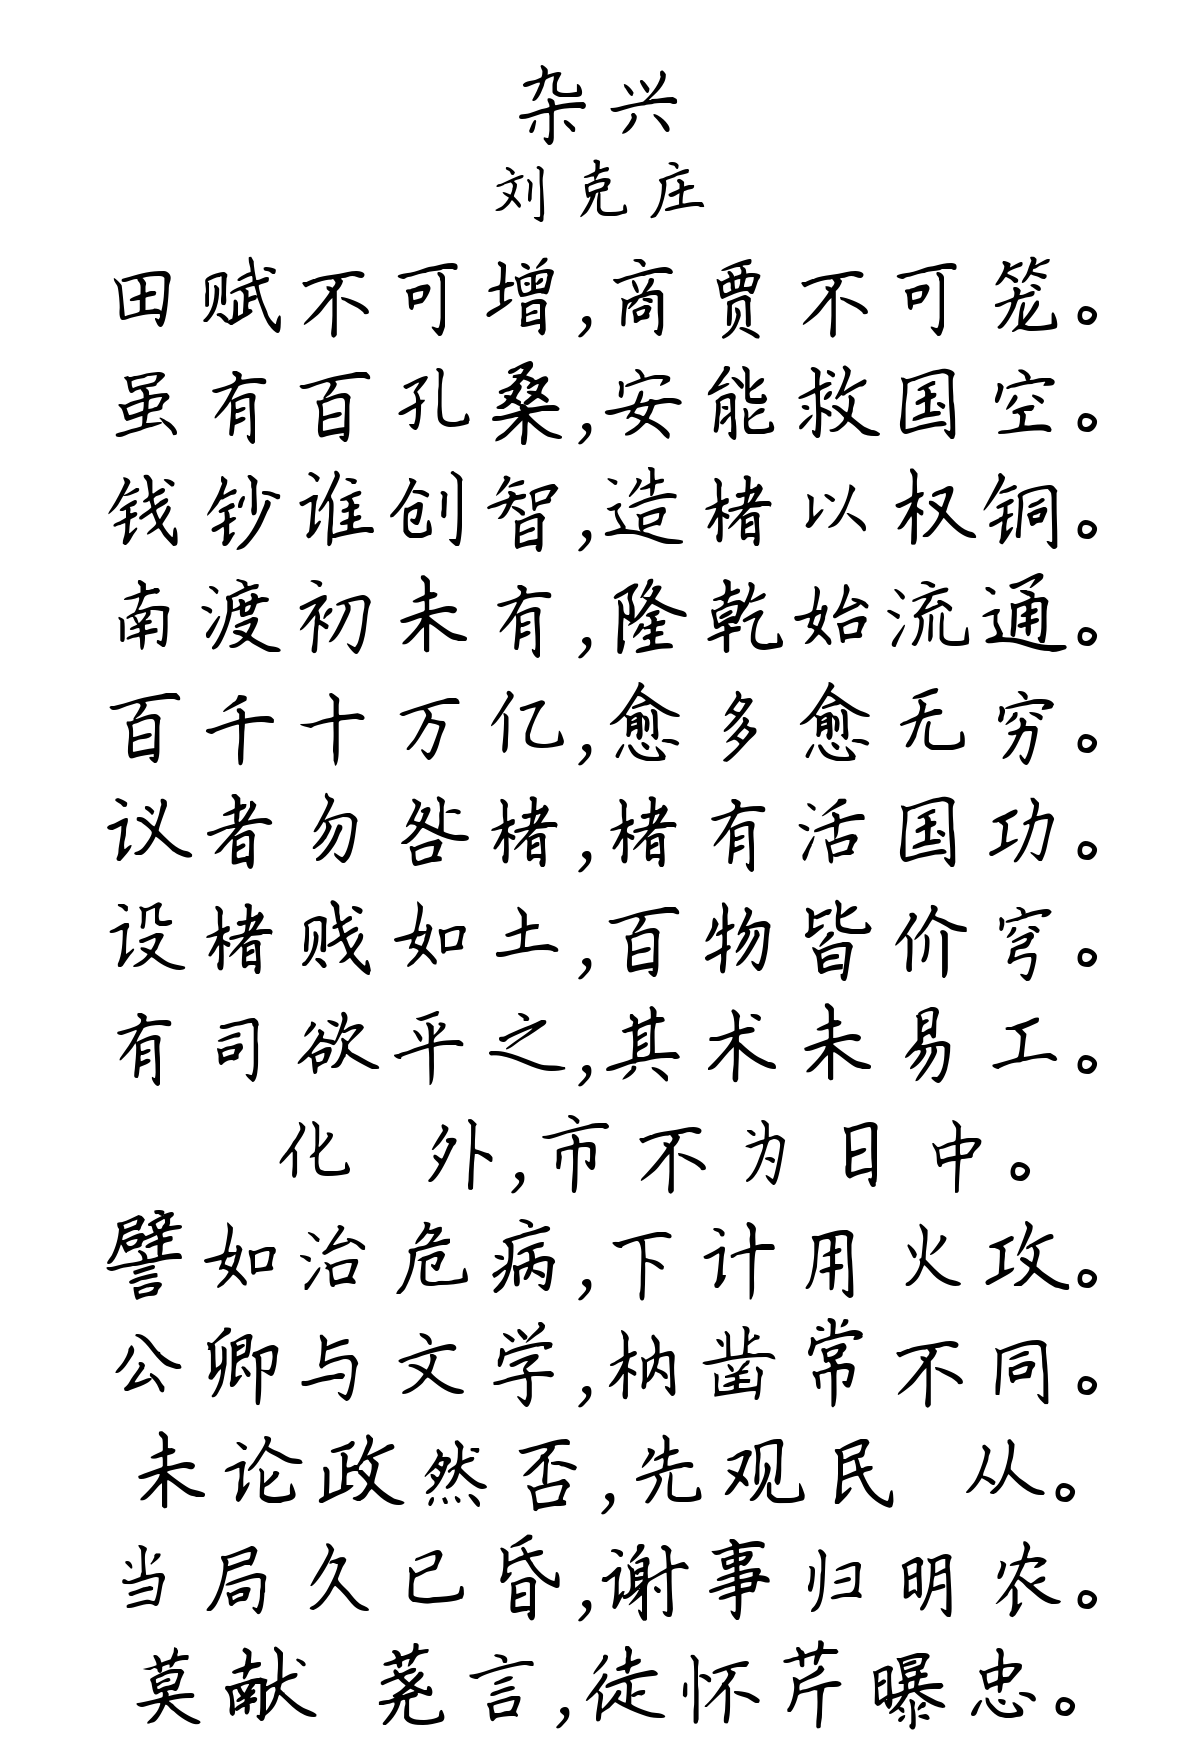 杂兴
刘克庄
田赋不可增,商贾不可笼。
虽有百孔桑,安能救国空。
钱钞谁创智,造楮以权铜。
南渡初未有,隆乾始流通。
百千十万亿,愈多愈无穷。
议者勿咎楮,楮有活国功。
设楮贱如土,百物皆价穹。
有司欲平之,其术未易工。
化 外,市不为日中。
譬如治危病,下计用火攻。
公卿与文学,枘凿常不同。
未论政然否,先观民 从。
当局久已昏,谢事归明农。
莫献 荛言,徒怀芹曝忠。